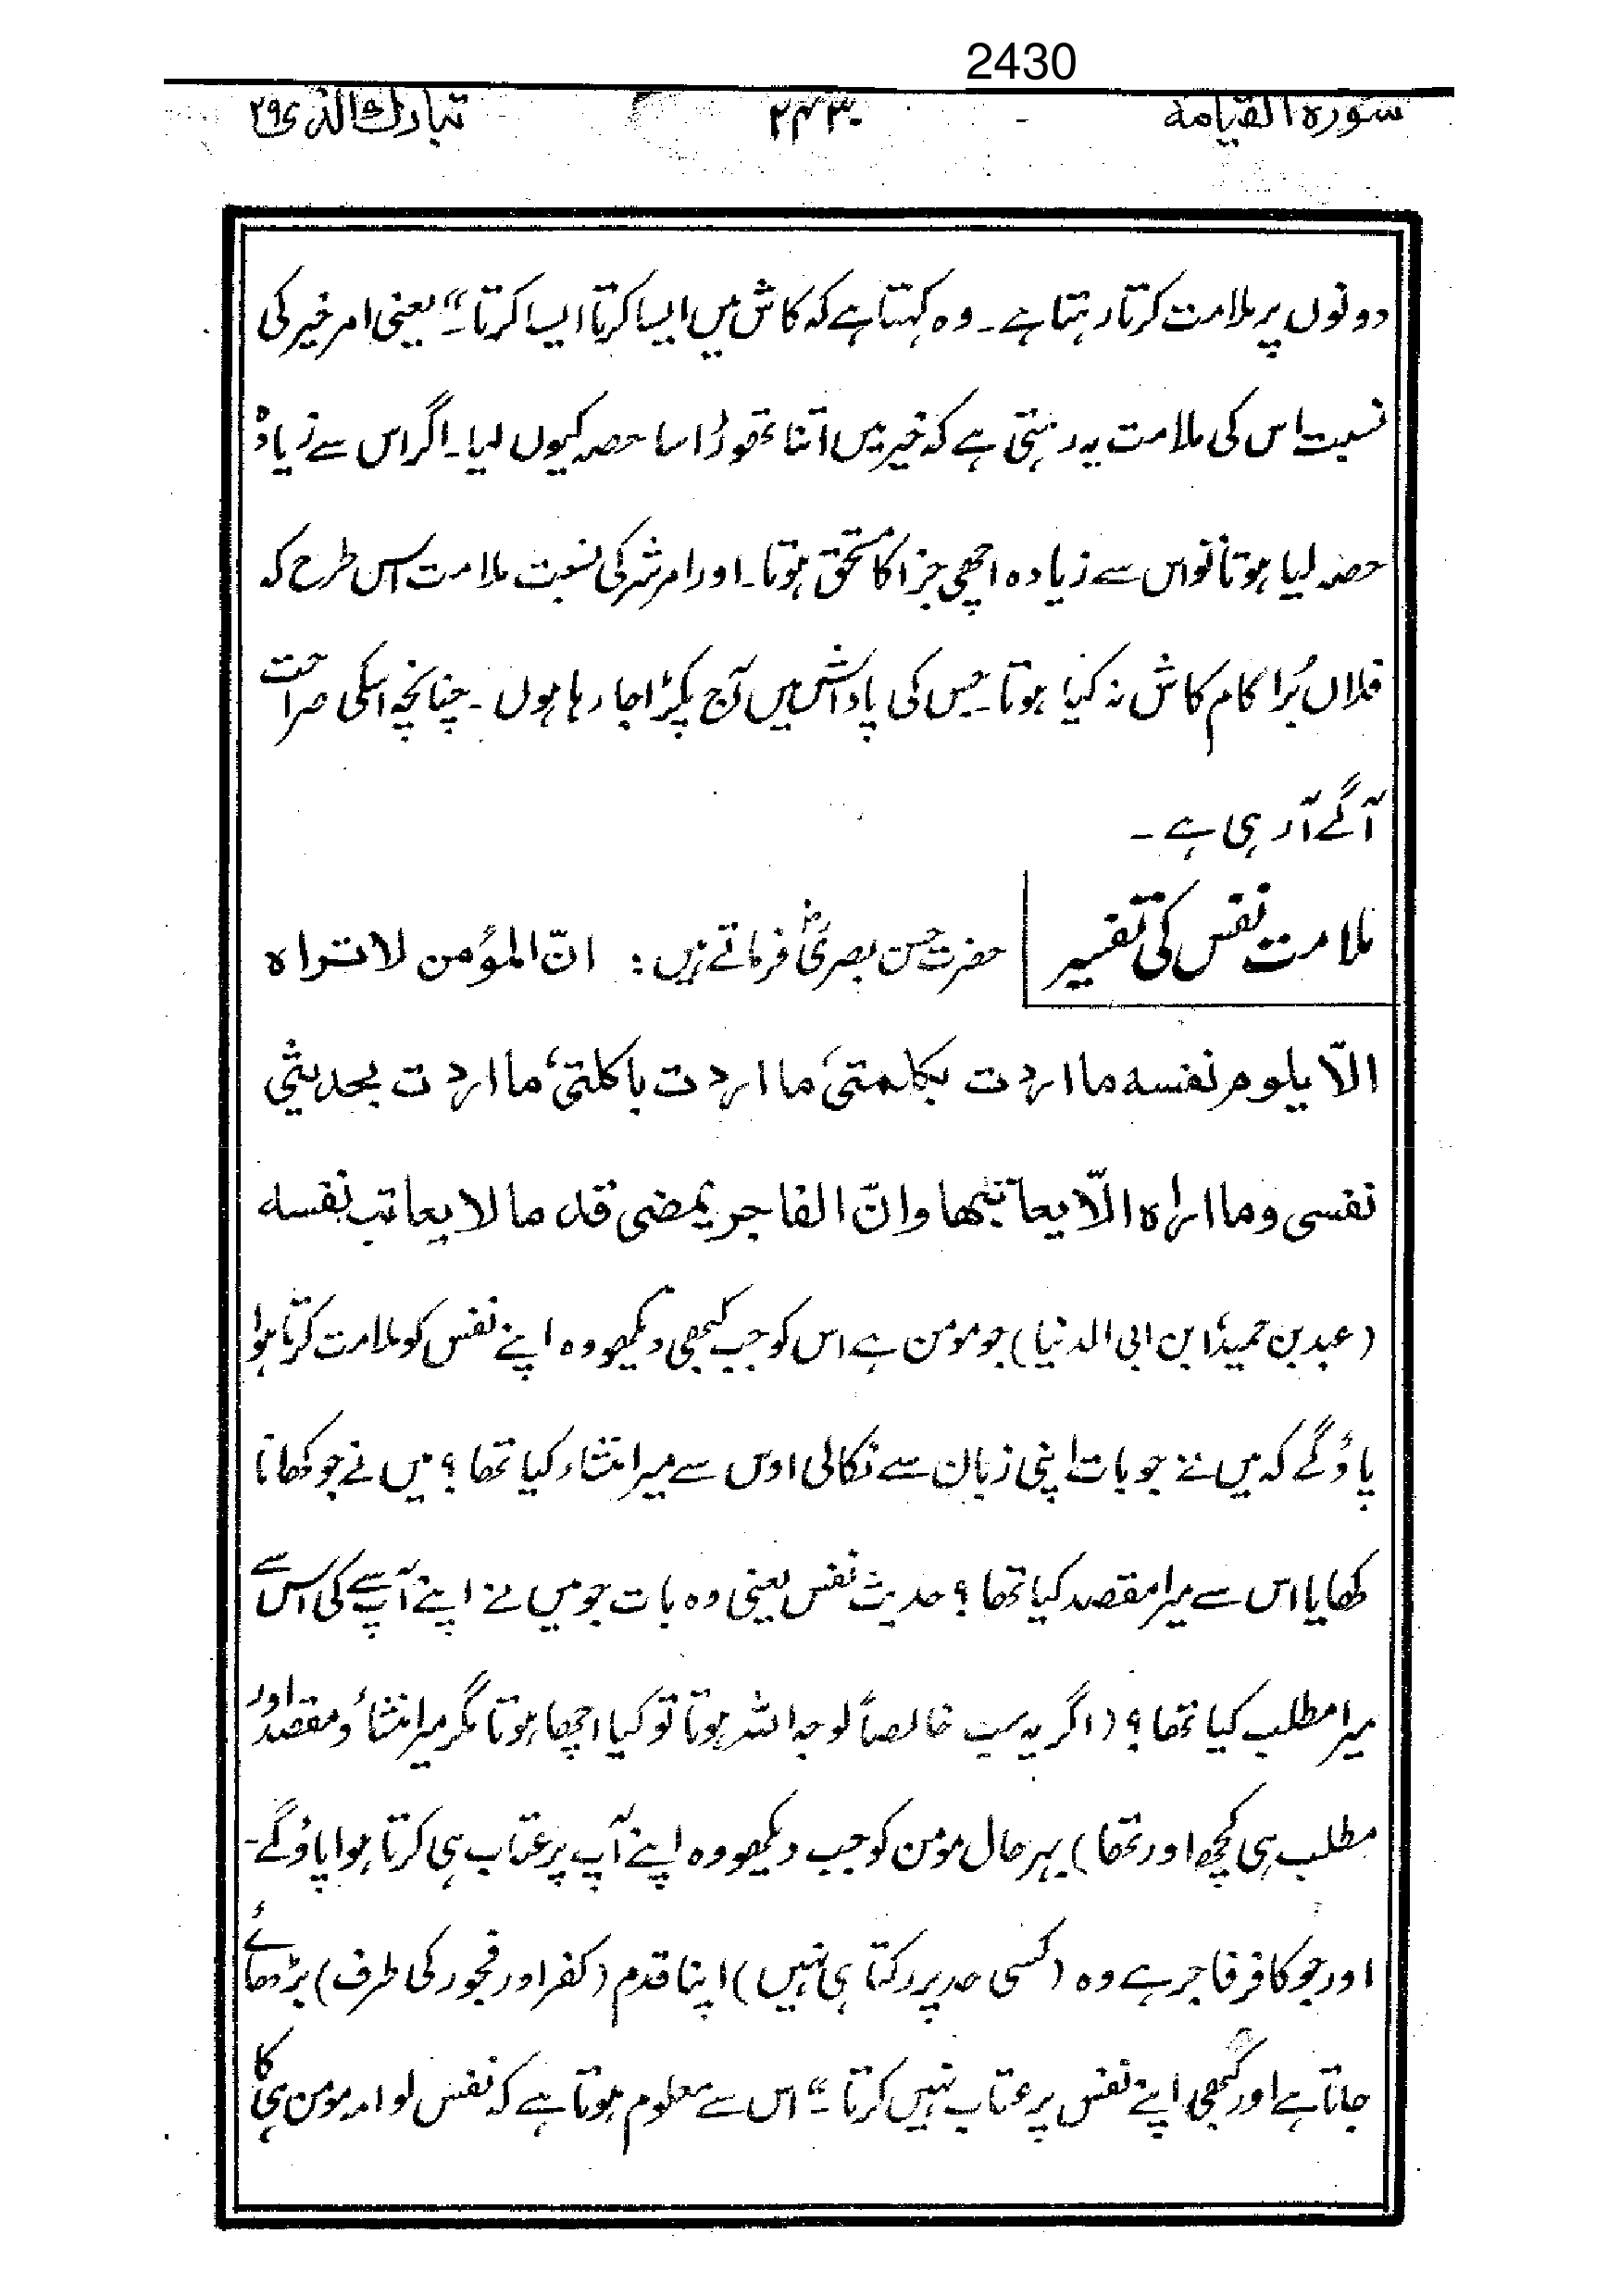 2430
سورہ القیامۃ ۲۴۳۰ تبارك الذی ۲۹
دونوں پر ملامت کرتا رہتا ہے۔ وہ کہتا ہے کہ کاش میں ایسا کرتا ایسا کرتا۔“ یعنی امر خیر کی
نسبت اس کی ملامت یہ رہتی ہے کہ خیر میں اتنا تھوڑا سا حصہ کیوں لیا۔ اگر اس سے زیادہ
حصہ لیا ہوتا تو اس سے زیادہ اچھی جزا کا مستحق ہوتا۔ اور امر شر کی نسبت ملامت اس طرح کہ
فلاں بُرا کام کاش نہ کیا ہوتا۔ جس کی پاداش میں آج پکڑا جا رہا ہوں۔ چنانچہ اسکی صراحت
آگے آرہی ہے۔
ملامت نفس کی تفسیر حضرت حسن بصریؒ فرماتے ہیں: انّ المؤمن لا تراہ
الّا یلوم نفسہ ما اردت بکلمتی، ما اردت باکلتی، ما اردت بحدیثی
نفسی وما اراہ الّا یعاتبھا وانّ الفاجر یمضی قدما لا یعاتب نفسہ
(عبد بن حمید، ابن ابی الدنیا) جو مومن ہے اس کو جب کبھی دیکھو وہ اپنے نفس کو ملامت کرتا ہوا
پاؤ گے کہ میں نے جو بات اپنی زبان سے نکالی اوس سے میرا منشاء کیا تھا؟ میں نے جو کھانا
کھایا اس سے میرا مقصد کیا تھا؟ حدیث نفس یعنی وہ بات جو میں نے اپنے آپ سے کی اس سے
میرا مطلب کیا تھا؟ (اگر یہ سب خالصاً لوجہ اللہ ہوتا تو کیا اچھا ہوتا مگر میرا منشاء و مقصد اور
مطلب ہی کچھ اور تھا) بہر حال مومن کو جب دیکھو وہ اپنے آپ پر عتاب ہی کرتا ہوا پاؤ گے۔
اور جو کافر فاجر ہے وہ (کسی حد پر رکتا ہی نہیں) اپنا قدم (کفر اور فجور کی طرف) بڑھائے
جاتا ہے اور کبھی اپنے نفس پر عتاب نہیں کرتا۔“ اس سے معلوم ہوتا ہے کہ نفس لوامہ مومن ہی کا